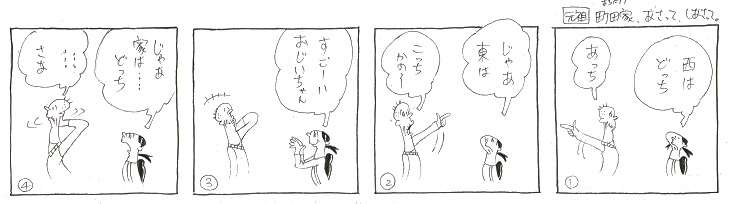 元祖 町田家、あさって、しあさって。
西は
どっち
あっち
①
じゃあ
東は
こっち
かの〜
②
すごーい
おじいちゃん
③
じゃあ
家は…
どっち
……
さあ
④